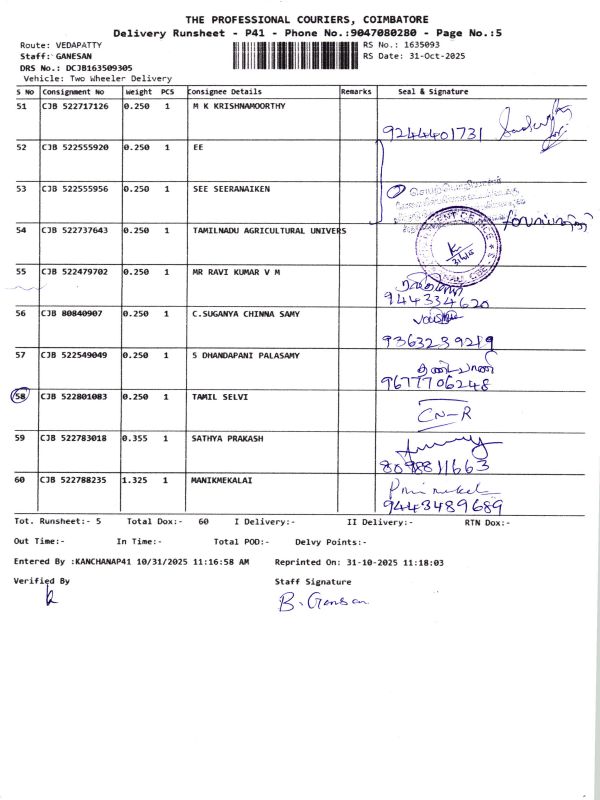 THE PROFESSIONAL COURIERS, COIMBATORE
Delivery Runsheet - P41 - Phone No.:9047080280 - Page No.:5
Route: VEDAPATTY
RS No.: 1635093
Staff: GANESAN
RS Date: 31-Oct-2025
DRS No.: DCJB163509305
Vehicle: Two Wheeler Delivery
S No Consignment No Weight PCS Consignee Details Remarks Seal & Signature
51 CJB 522717126 0.250 1 M K KRISHNAMOORTHY
9244401731
52 CJB 522555920 0.250 1 EE
53 CJB 522555956 0.250 1 SEE SEERANAIKEN
54 CJB 522737643 0.250 1 TAMILNADU AGRICULTURAL UNIVERS
55 CJB 522479702 0.250 1 MR RAVI KUMAR V M
944334620
56 CJB 80840907 0.250 1 C.SUGANYA CHINNA SAMY
9363239219
57 CJB 522549049 0.250 1 S DHANDAPANI PALASAMY
9677706248
58 CJB 522801083 0.250 1 TAMIL SELVI
CN-R
59 CJB 522783018 0.355 1 SATHYA PRAKASH
8098811663
60 CJB 522788235 1.325 1 MANIKMEKALAI
9443489689
Tot. Runsheet:- 5 Total Dox:- 60 I Delivery:- II Delivery:- RTN Dox:-
Out Time:- In Time:- Total POD:- Delvy Points:-
Entered By :KANCHANAP41 10/31/2025 11:16:58 AM Reprinted On: 31-10-2025 11:18:03
Verified By Staff Signature
B. Gansan